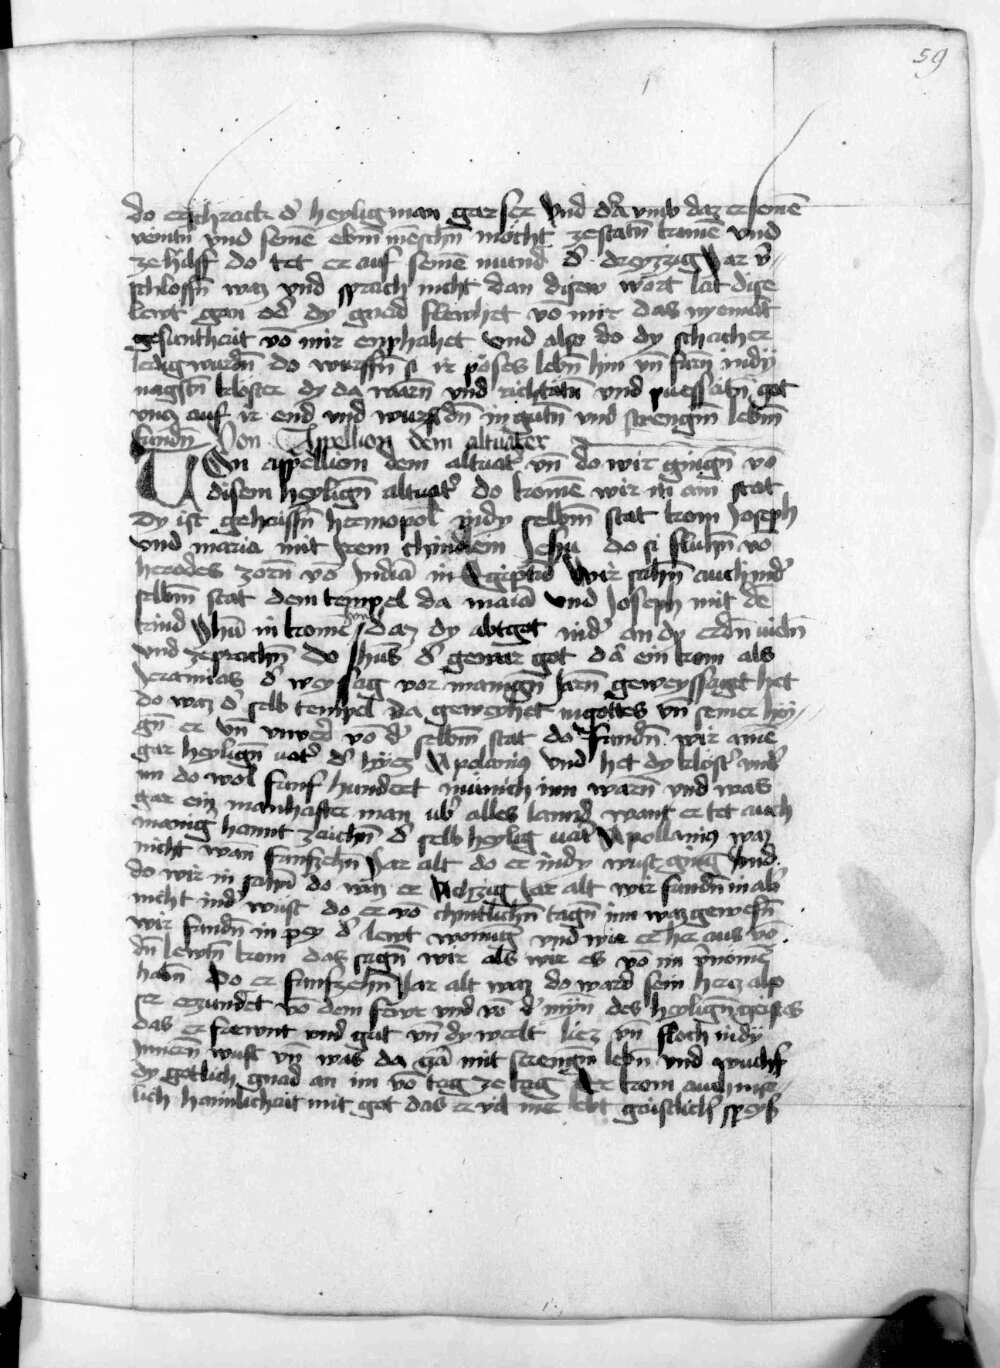 59
do erschrackt d' heylig man gar ser Vnd dā vmb daz er seinē
veintn̄ vnd seinē ebm̄ mēschn̄ möcht zestatn̄ komē vnd
ze hilff do tet er auf seinē mund d' dreyzzig Jar v'
schlossn̄ waz vnd sprach nicht dan disew wort lat dise
lewt gan od' dy gnad flewhet vō mir das nyemāt
gesuntheit vō mir enphahet Vnd also do dy schacher
ledig wurdn̄ do wurffn̄ si ir pöses lebn̄ hin vn̄ furn̄ indy
nagstn̄ kloster dy da warn̄ vnd richtatn̄ vnd puessatn̄ got
vncz auf ir end vnd wurdn̄ in gutn̄ vnd strengm̄ lebm̄
fundn̄ Von Appellion dem altuater
Von appellion dem altuat' vn̄ do wir gingn̄ vō
disem heylign̄ altuat' do komē wir in ain stat
Dy ist gehaissn̄ hermopol indy selbm̄ stat kom Joseph
vnd maria mit Irem chindlein Jhū do si fluhn̄ vō
herodes zorn̄ vō Judeā in Egiptū Wir sahn̄ auch ind'
selbm̄ stat dem tempel da maiā vnd Joseph mit dē
kind Jhū in komē daz dy abtgot nid' an dy erdn̄ vieln̄
vnd zeprachn̄ Do Jhūs d' gewar got dā ein kom als
Jeramias d' weyssag vor manign̄ Jarn̄ geweyssaget het
do waz d' selb tempel da geweyhet in gottes vn̄ seiner hey
gn̄ er vn̄ vnwerd vō d' selbm̄ stat do fundn̄ wir ainē
gar heylign̄ vat' d' hyez Apolonius vnd het dy klöst' vnd'
im do wol funf hundert munich inn warn̄ vnd was
gar ein manhafter man vb' alles lannd want er tet auch
manig' hannt zaichn̄ d' selb heylig vat' Apollonius waz
nicht wan̄ funfzehn̄ Jar alt do er indy wust gieng Vnd
do wir in sahn̄ do waz er Achzig Jar alt wir fundn̄ in ab'
nicht ind' wust do er vō chintlichn̄ tagn̄ inn waz gewesn̄
wir fundn̄ in pey d' lewt wonūg vnd wie er her aus vō
dn̄ lewtn̄ kom das sagn̄ wir als wir es vō im v'nomē
habn̄ Do er funfzehn̄ Jar alt waz do ward sein hercz also
ser erzundet vō dem fewr vnd vō d' mynn̄ des heylign̄ geistes
das er frewnt vnd gut vn̄ dy welt liez vn̄ floch indy
innern̄ wust vn̄ was da gā mit strengm̄ lebn̄ vnd wuchs
dy gotlich gnad an im vō tag ze tag Er kom auch in so
lich haimlichait mit got das er vil me lebt gaistlich' speys